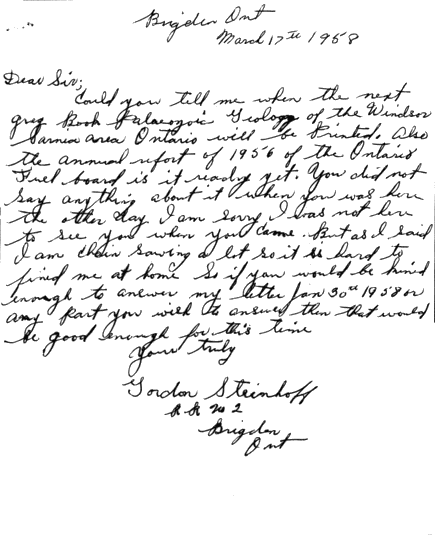 Brigden Ont
March 17th 1958
Dear Sir;
Could you tell me when the next
grey Book Palaeozoic Geology of the Windsor
Sarnia area Ontario will be Printed. Also
the annual refort of 1956 of the Ontario
Fuel board is it ready yet. You did not
say anything about it when you was here
the other day I am sorry I was not here
to see you when you came. But as I said
I am chain sawing a lot so it is hard to
find me at home So if you would be kind
enough to answer my letter Jan 30th 1958 or
any Part you wish to answer then that would
be good enough for this time
Yours truly
Gordon Steinhoff
R R No 2
Brigden
Ont